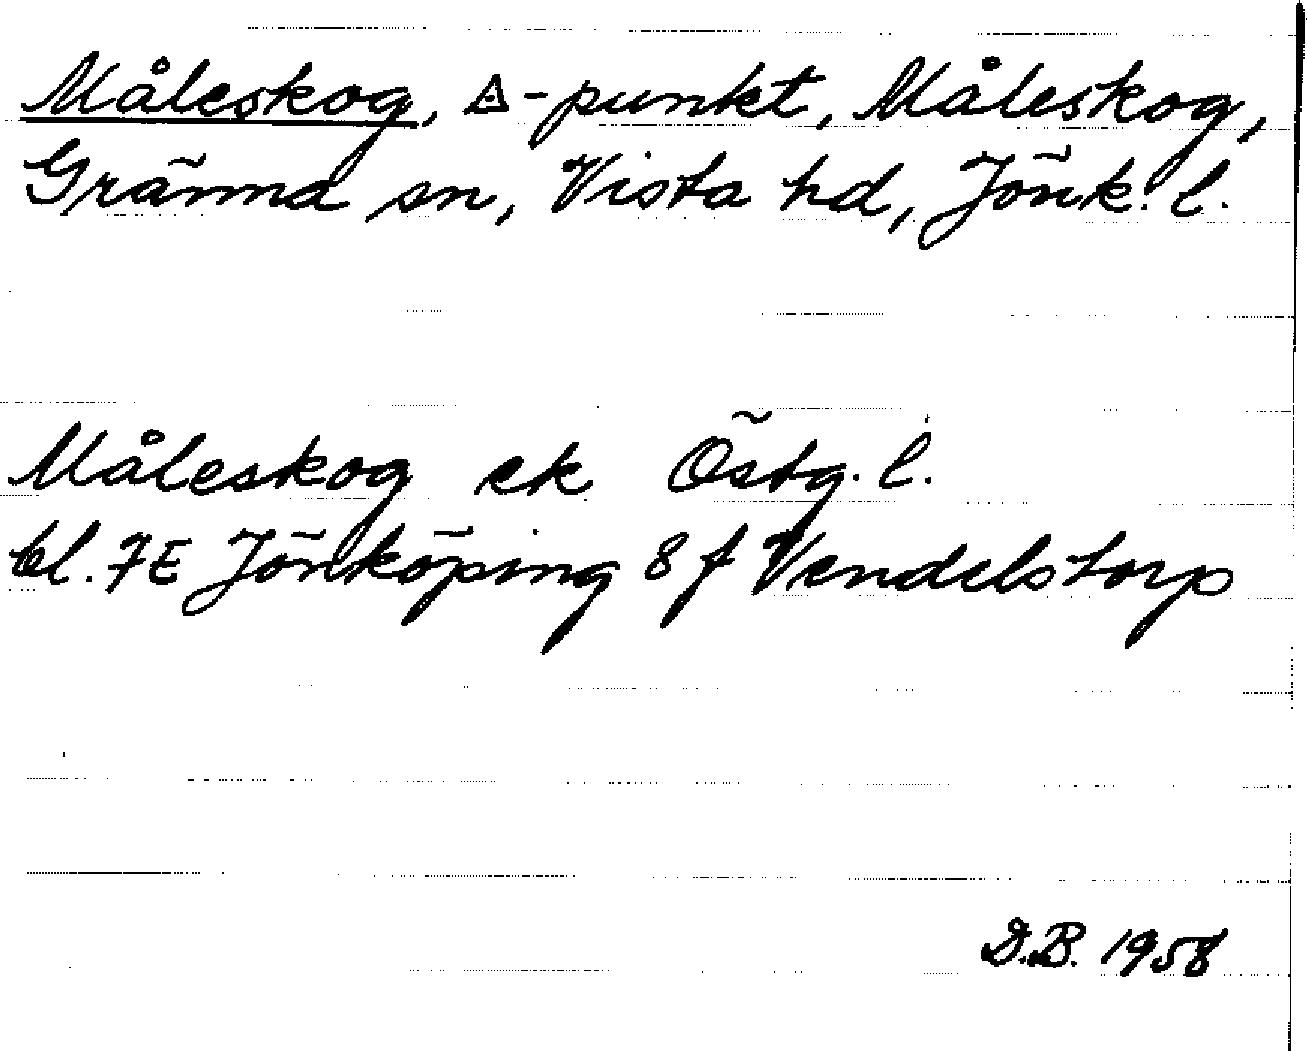 Måleskog, △-punkt, Måleskog,
Gränna sn, Vista hd, Jönk. l.
Måleskog ek Östg. l.
bl. 7E Jönköping 8 f Vendelstorp
D.B. 1958